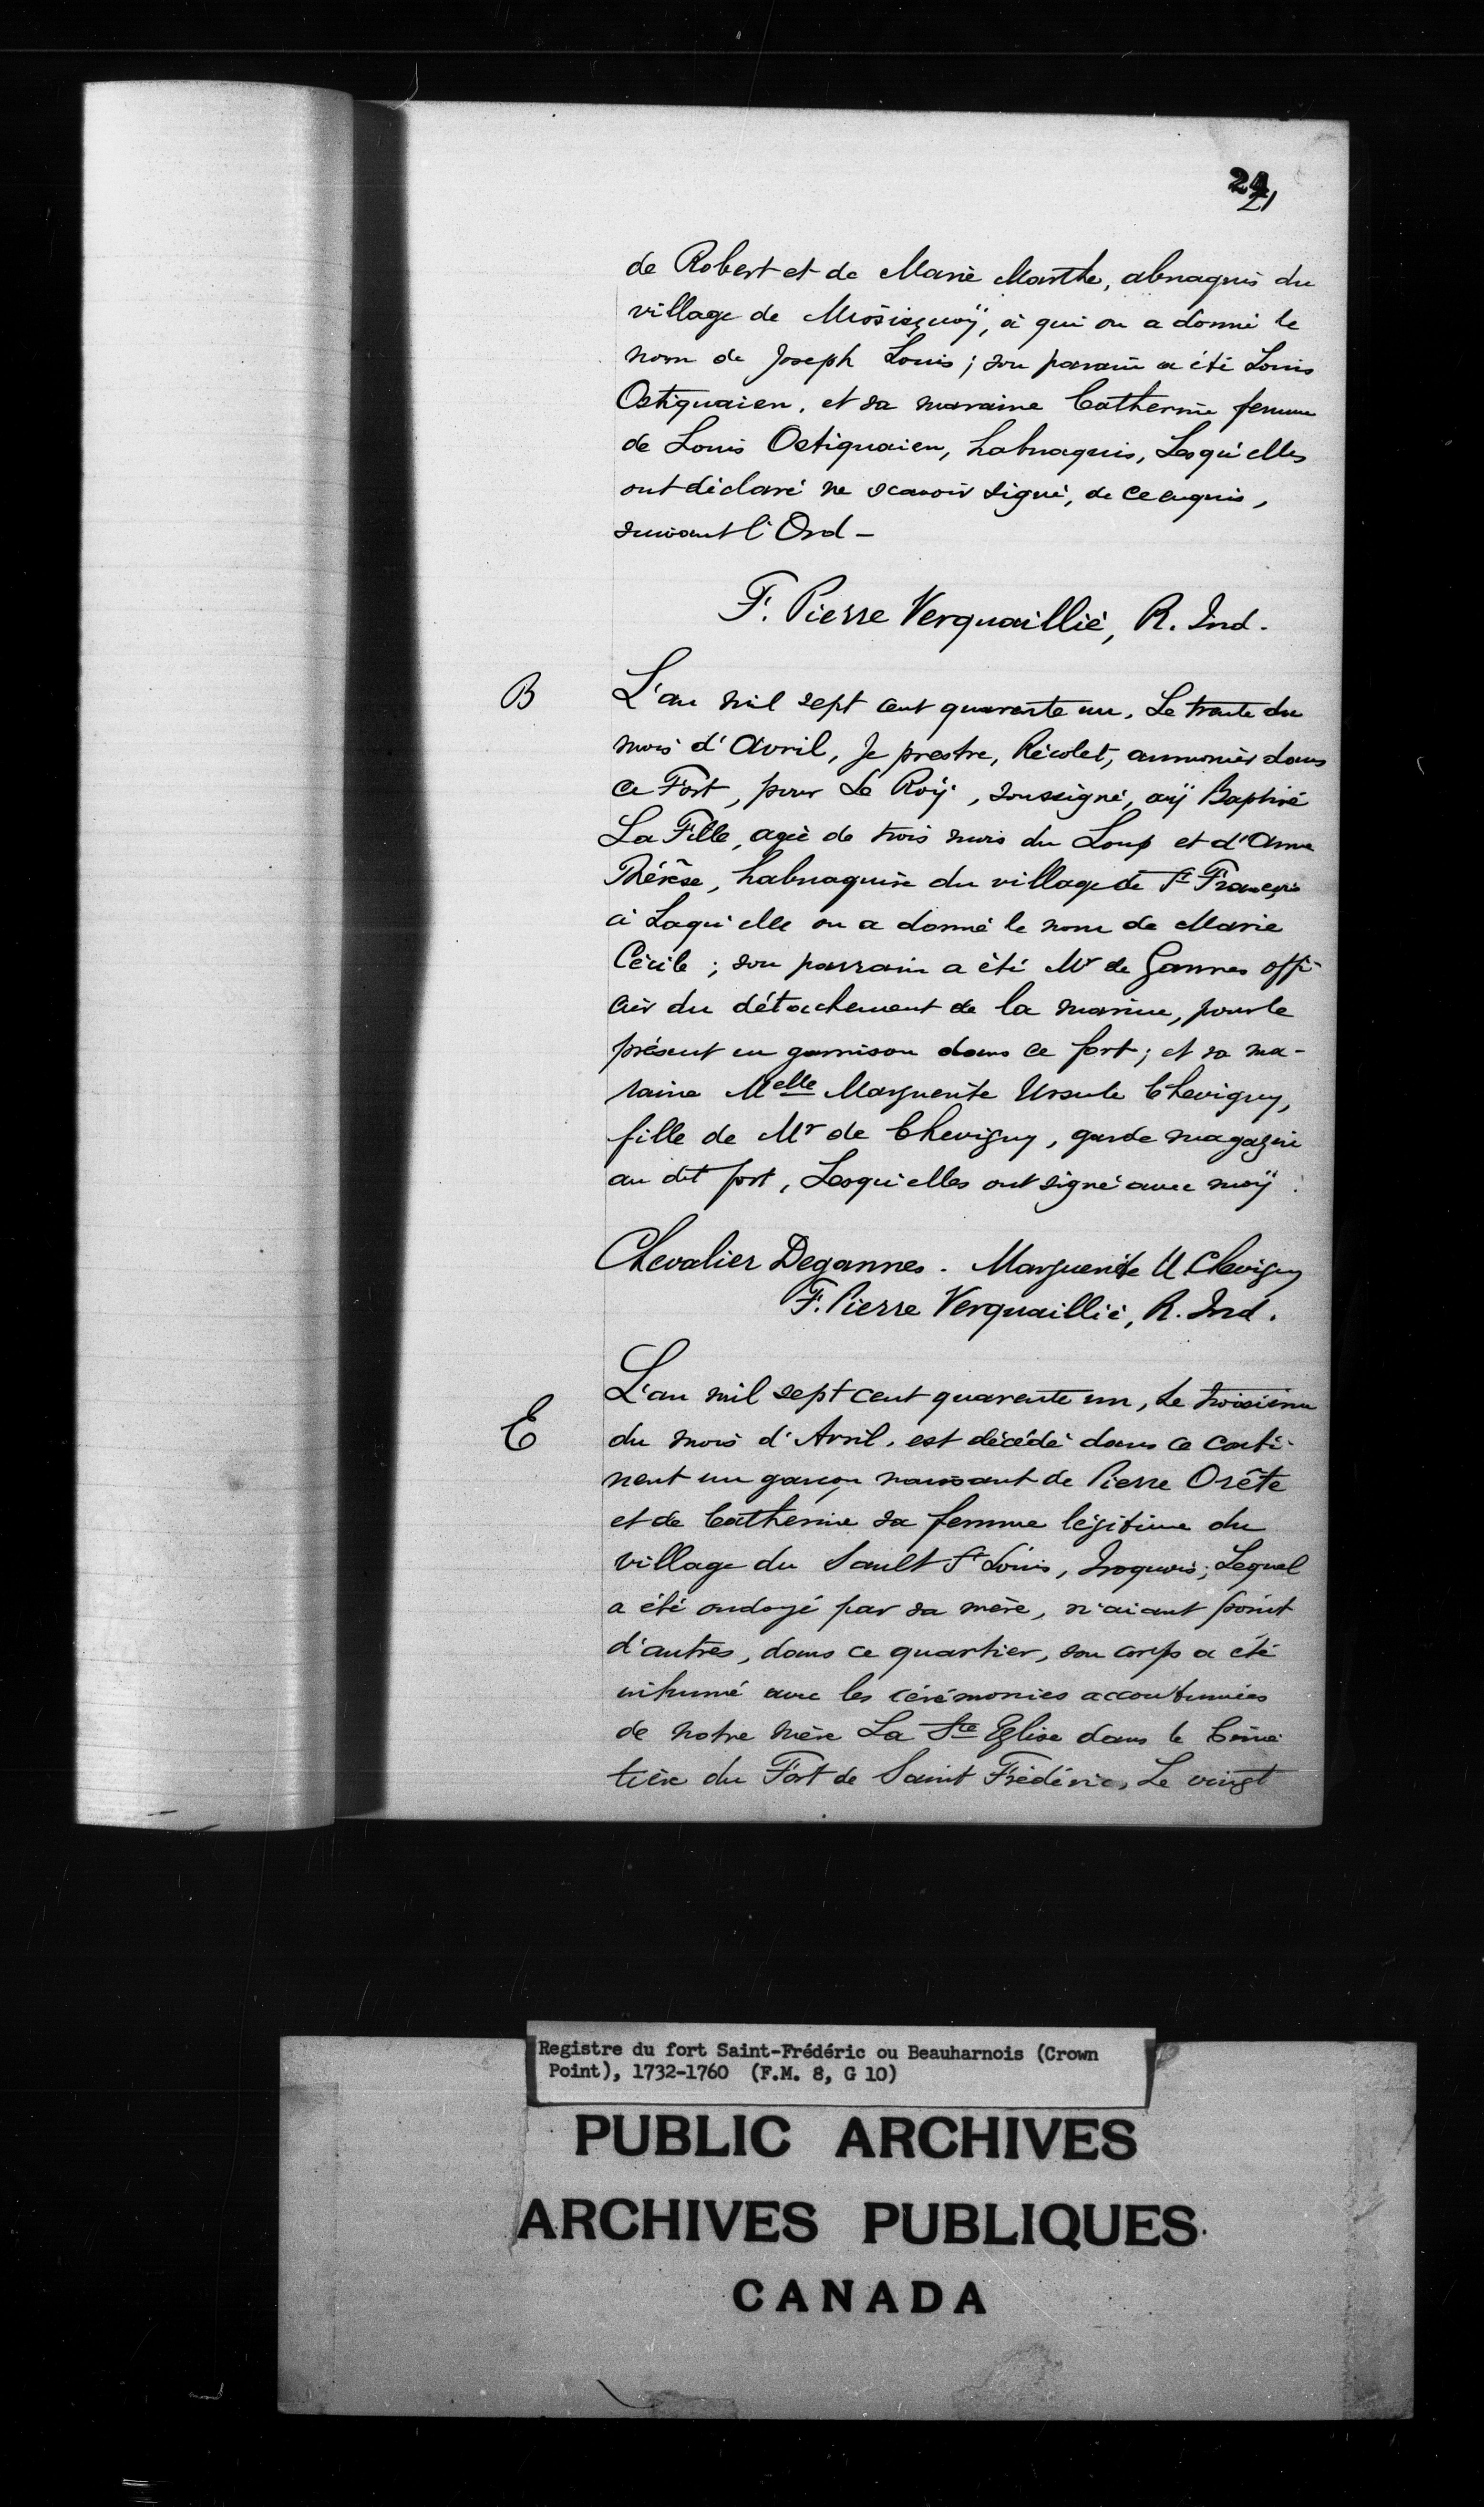 21
de Robert et de Marie Marthe, abnaquis du
village de Missisquoÿ, à qui on a donné le
nom de Joseph Louis; son parain a été Louis
Ostiquaien, et sa maraine Catherine femme
de Louis Ostiquaien, habnaquis, Lesqu'elles
ont déclaré ne scavoir signé, de ce enquis,
suivant l'Ord -
F. Pierre Verquaillié, R. Ind.
B
L'an mil sept cent quarante un, Le trente du
mois d'Avril, Je prestre, Récolet, aumonier dans
ce Fort, pour Le Roÿ, soussigné, aÿ Baptisé
La Fille, agée de trois mois du Loup et d'Anne
Thérèse, habnaquise du village de St François
à Laqu'elle on a donné le nom de Marie
Cécile; son parrain a été Mr de Gannes offi-
cier du détachement de la marine, pour le
présent en garnison dans ce fort; et sa ma-
raine Melle Marguerite Ursule Chevigny,
fille de Mr de Chevigny, garde magazin
au dit fort, Lesqu'elles ont signé avec moÿ.
Chevalier Degannes. Marguerite U Chevigny
F. Pierre Verquaillié, R. Ind.
E
L'an mil sept cent quarente un, Le troisième
du mois d'Avril, est décédé dans ce conti-
nent un garçon naissant de Pierre Orête
et de Catherine sa femme légitime du
village du Sault St Louis, Iroquois; Lequel
a été ondoyé par sa mère, n'aiant point
d'autres, dans ce quartier, son corps a été
inhumé avec les cérémonies accoutumées
de notre mère La Ste Eglise dans le Cime
tière du Fort de Saint Frédéric, Le vingt
Registre du fort Saint-Frédéric ou Beauharnois (Crown
Point), 1732-1760 (F.M. 8, G 10)
PUBLIC ARCHIVES
ARCHIVES PUBLIQUES
CANADA